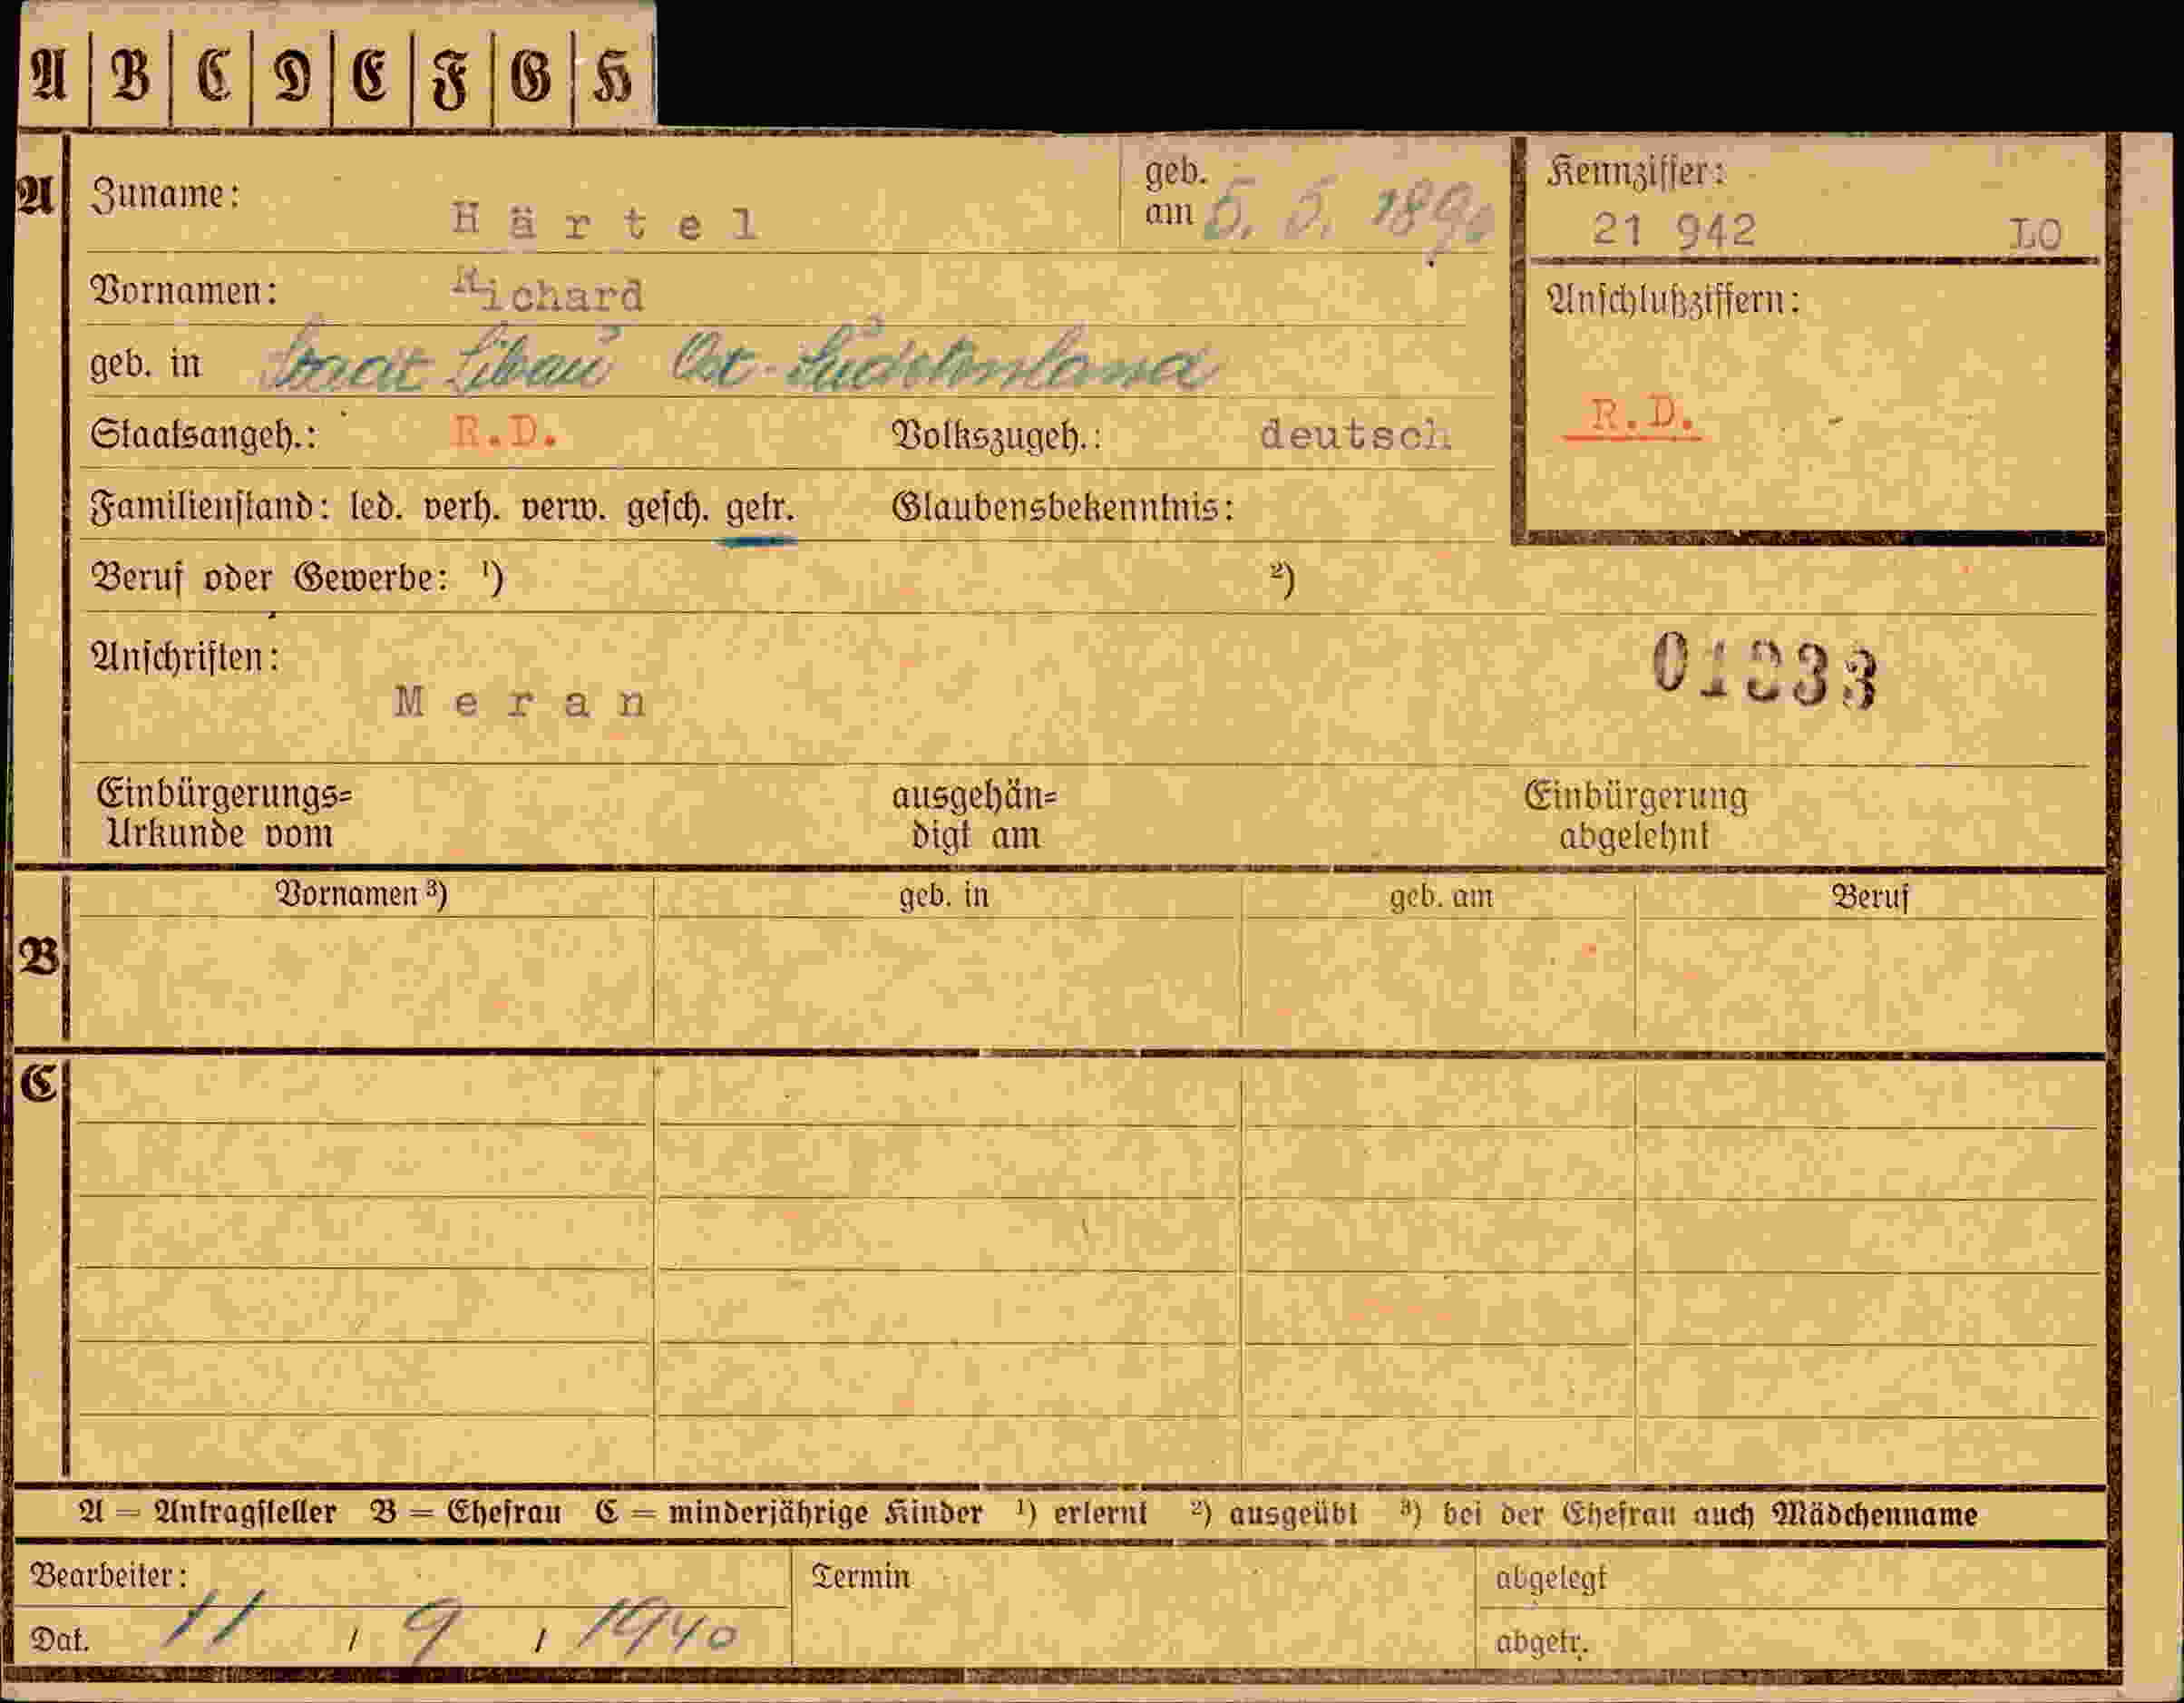 A B C D E F G H
A
Zuname: Härtel
geb. am 5. 5. 1890
Kennziffer:
21 942 LO
Vornamen: Richard
Anschlußziffern:
R.D.
geb. in Stadt Libau Ost-Sudetenland
Staatsangeh.: R.D. Volkszugeh.: deutsch
Familienstand: led. verh. verw. gesch. getr. Glaubensbekenntnis:
Beruf oder Gewerbe: ¹) ²)
Anschriften:
Meran
01333
Einbürgerungs=
Urkunde vom
ausgehän=
digt am
Einbürgerung
abgelehnt
B
Vornamen ³) geb. in geb. am Beruf
C
A = Antragsteller B = Ehefrau C = minderjährige Kinder ¹) erlernt ²) ausgeübt ³) bei der Ehefrau auch Mädchenname
Bearbeiter: Termin abgelegt
Dat. 11 / 9 / 1940 abgetr.